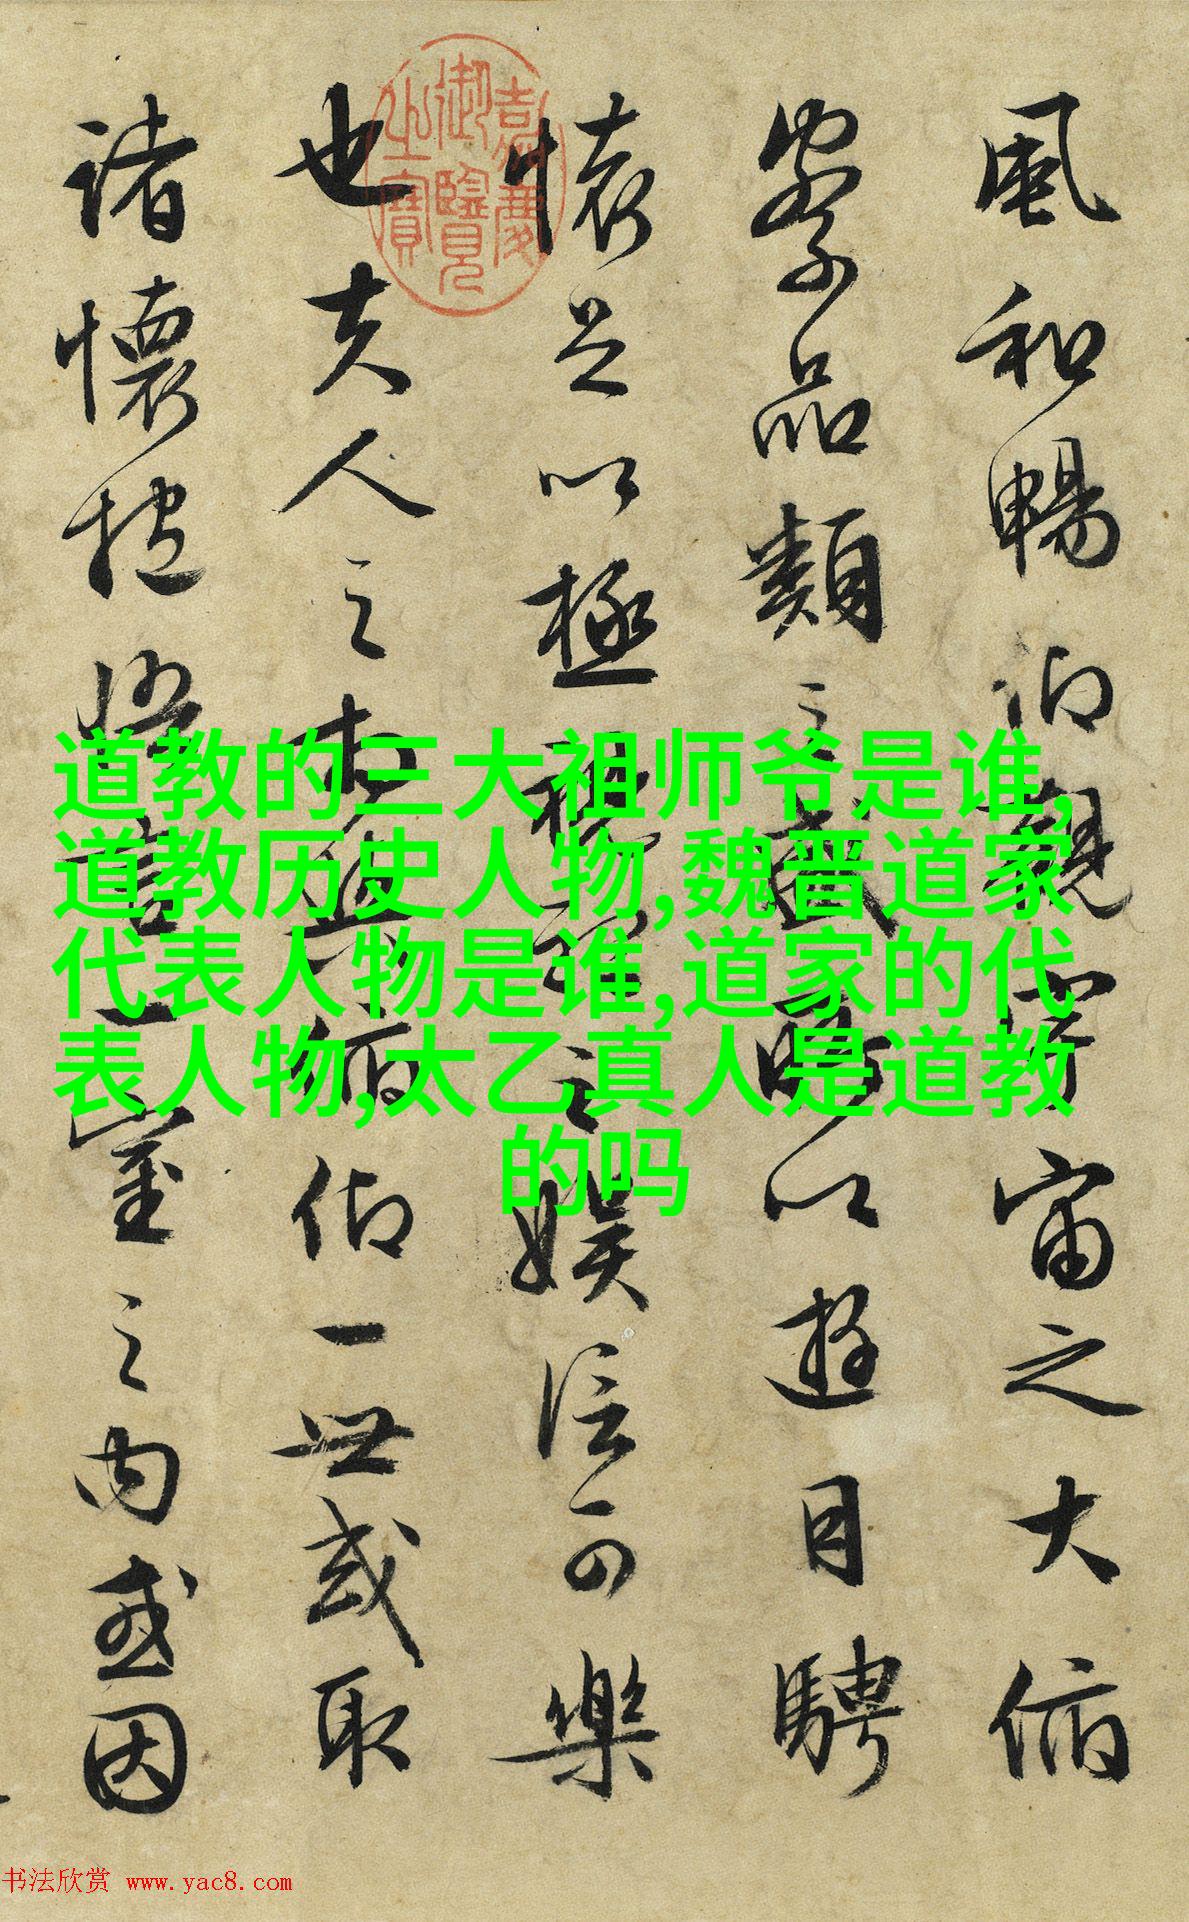 風和暢仰觀宇宙之大俯
察品類之盛所以遊目騁
懷足以極視聽之娛信可樂
也夫人之相與俯仰一世或取
諸懷抱悟言一室之內或因
嘉慶
御覽
之寶
道教的三大祖师爷是谁,
道教历史人物,魏晋道家
代表人物是谁,道家的代
表人物,太乙真人是道教
的吗
书法欣赏 www.yac8.com